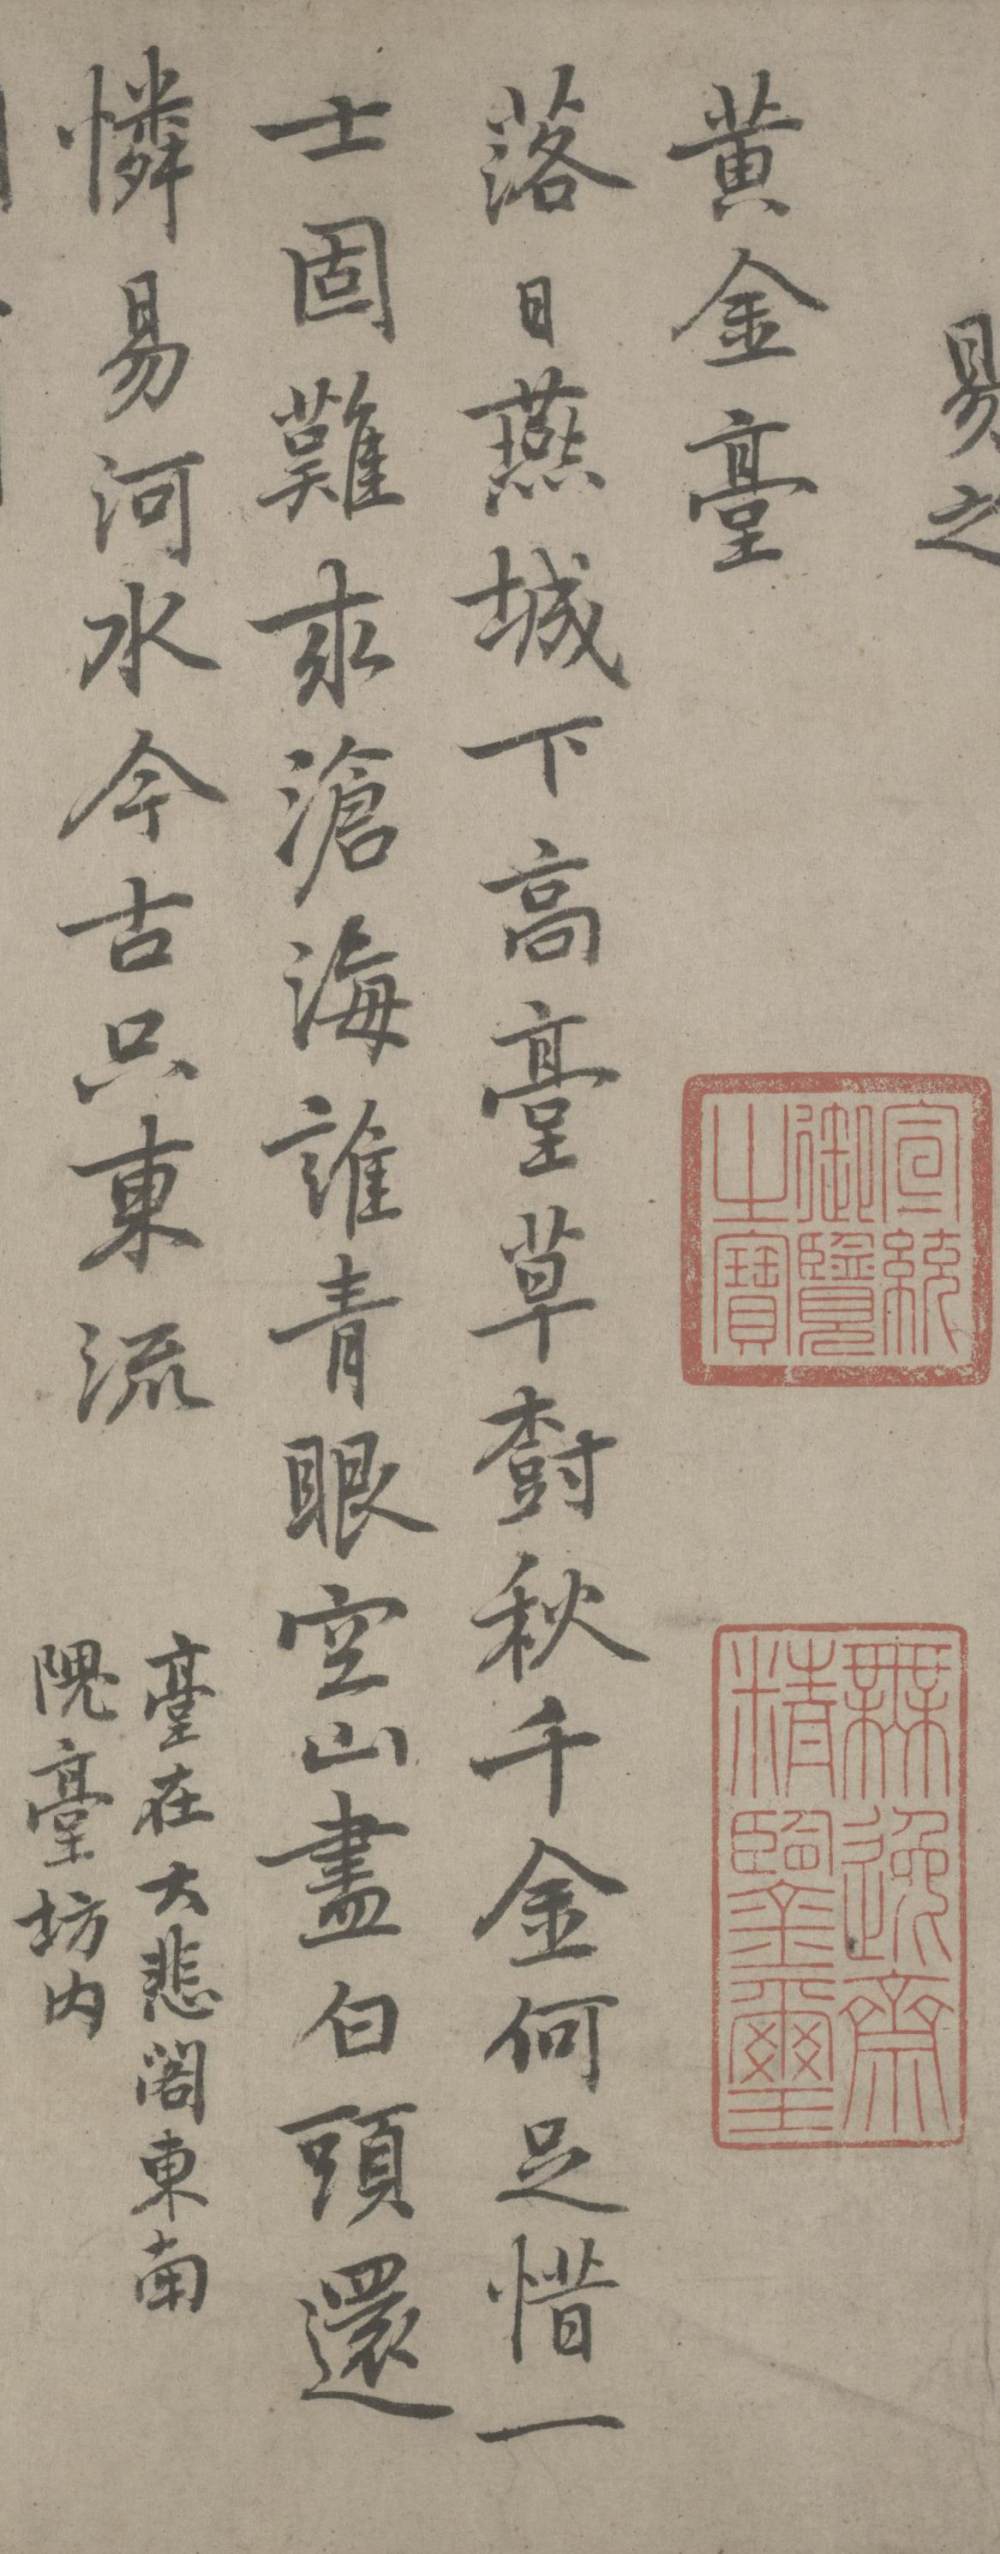 易之
黃金臺
落日燕城下高臺草樹秋千金何足惜一
士固難求滄海誰青眼空山盡白頭還
憐易河水今古只東流
臺在大悲閣東南
隗臺坊内
宣統御覽之寶
無逸齋精鑒璽